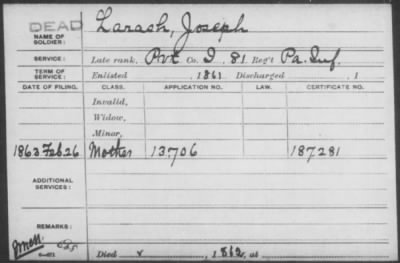 DEAD
NAME OF SOLDIER: Larash, Joseph
SERVICE: Late rank, Pvt Co. I, 81 Reg't Pa. Inf.
TERM OF SERVICE: Enlisted , 1861 Discharged , 1
DATE OF FILING. CLASS. APPLICATION NO. LAW. CERTIFICATE NO.
Invalid,
Widow,
Minor,
1863 Feb 26 Mother 13.706 187281
ADDITIONAL SERVICES:
REMARKS:
Died , 1862, at